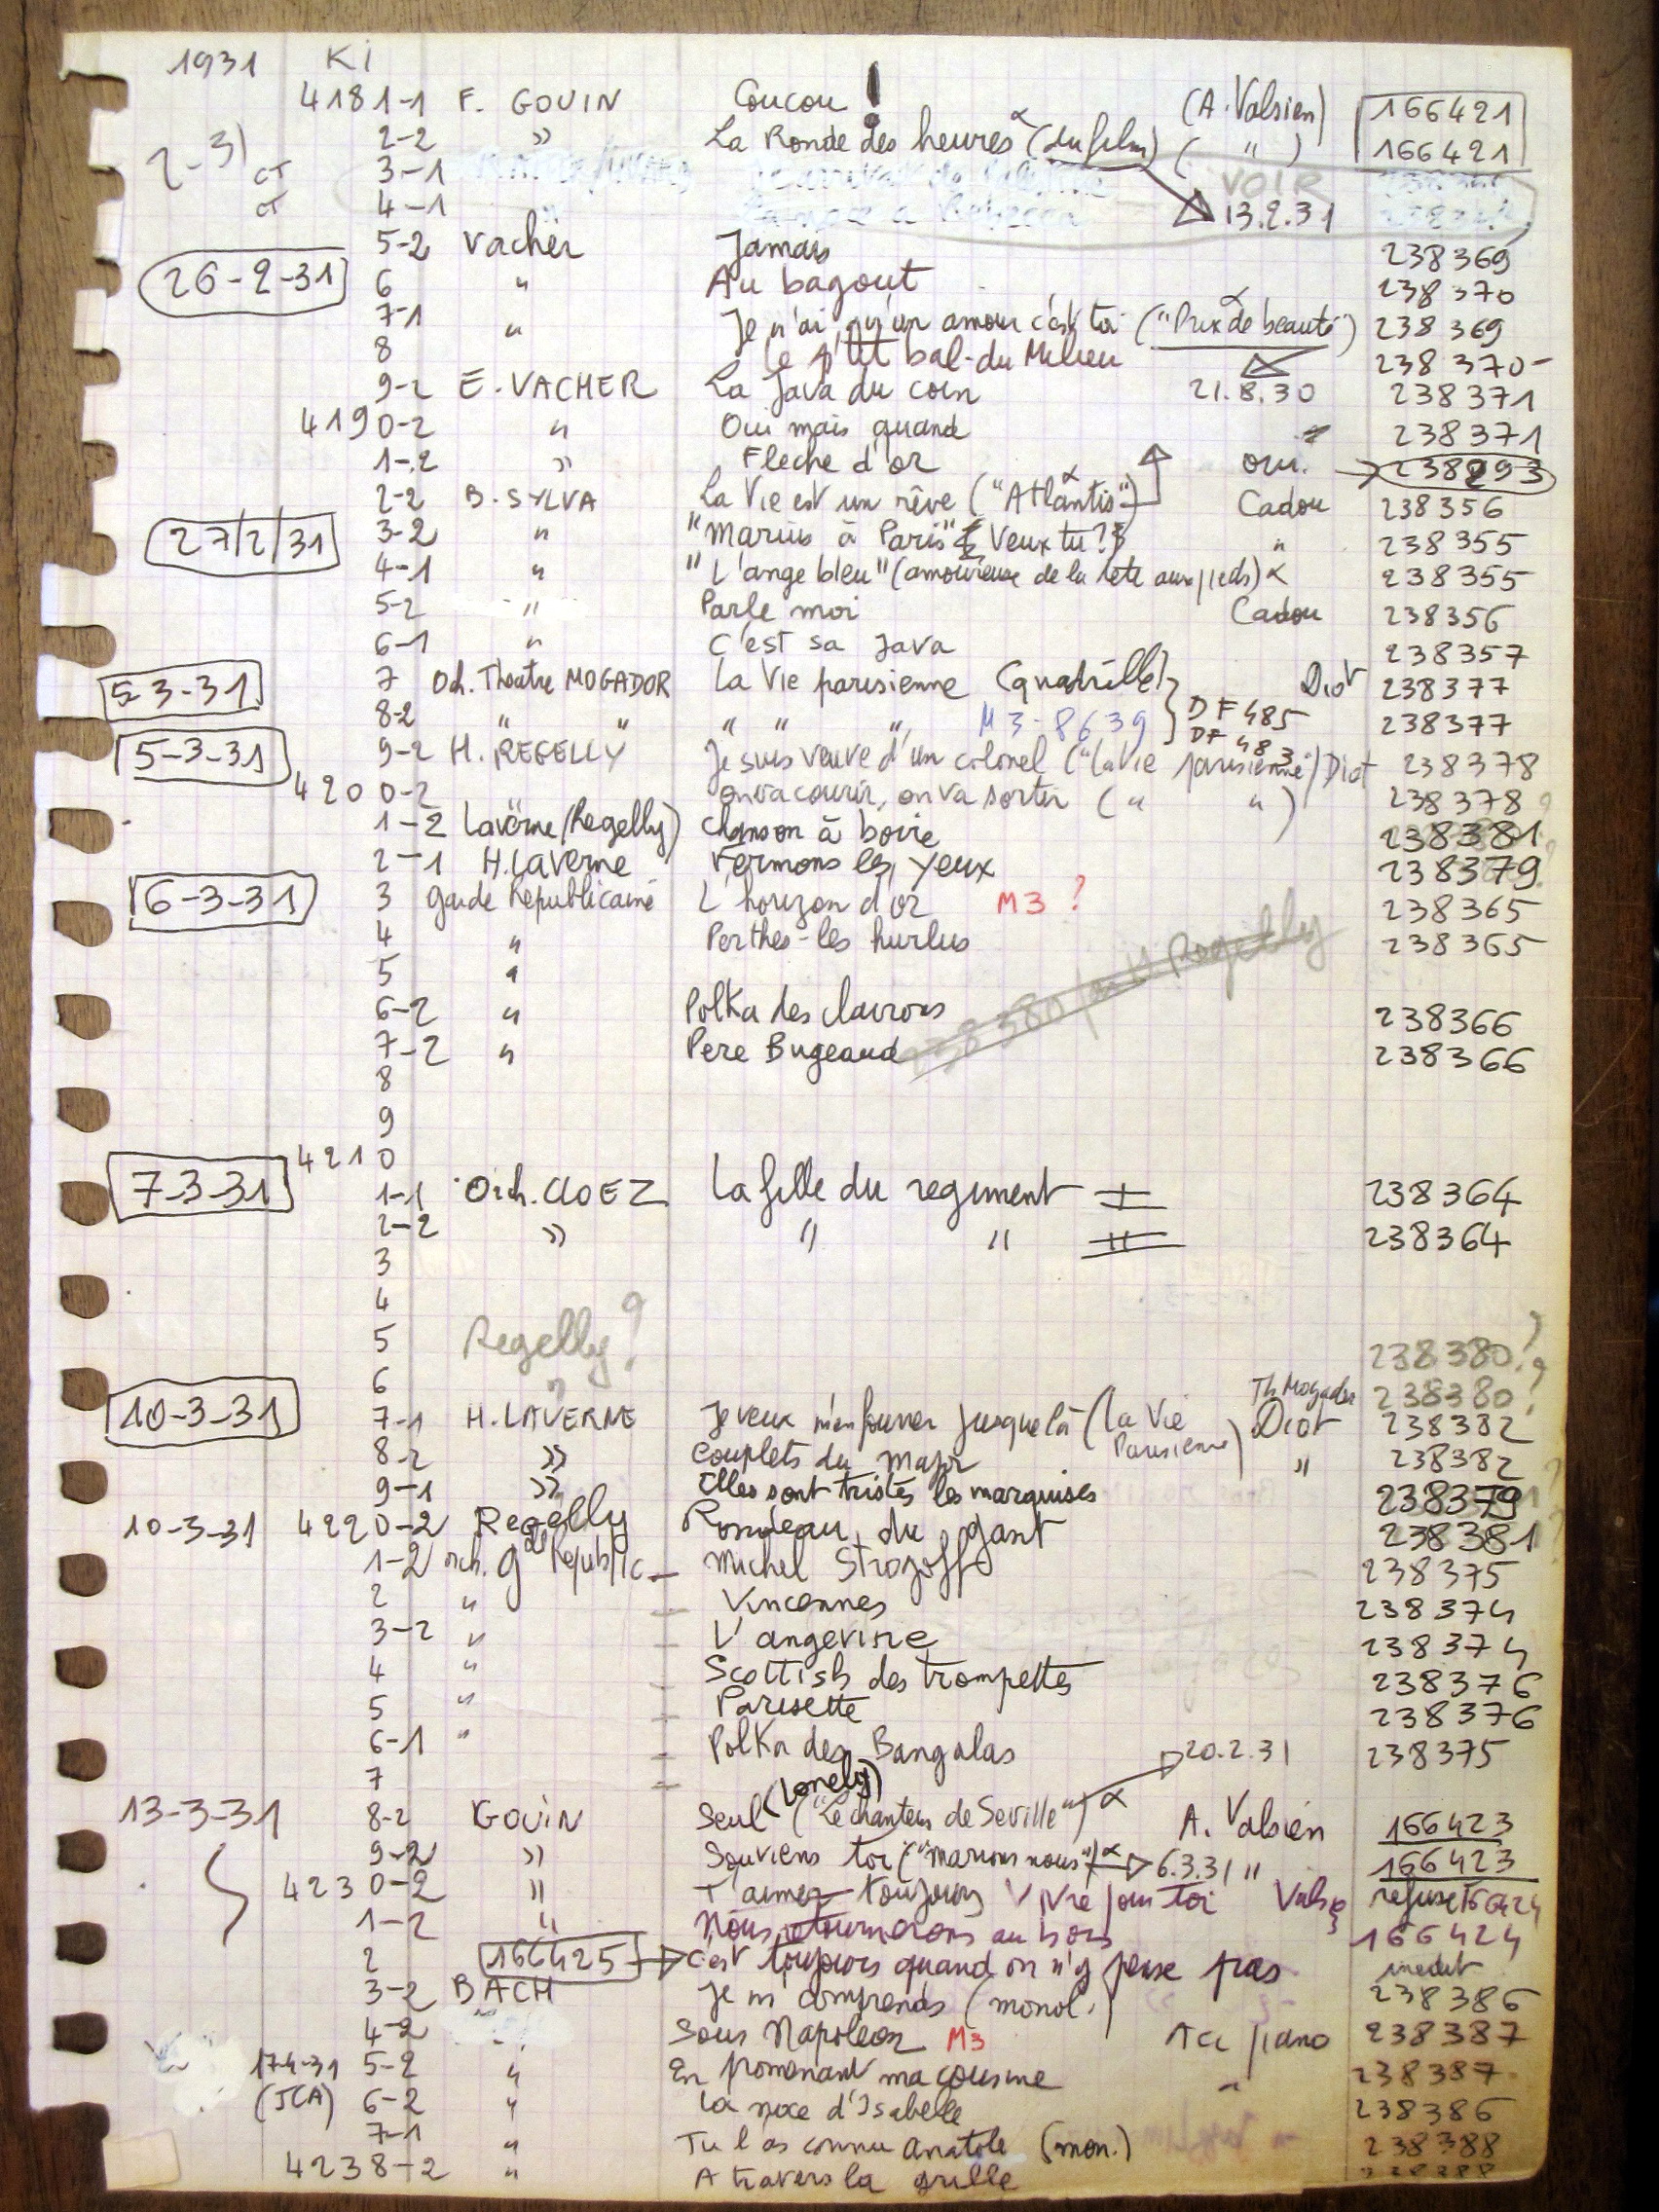 1931 Ki
4181-1 F. GOUIN Coucou ! (A. Valsien) 166421
2-2 » La Ronde des heures α (du film) ( " ) 166421
2-3) CT 3-1 VOIR
CT 4-1 13.2.31
5-2 Vacher Jamais 238369
26-2-31 6 " Au bagout 238370
7-1 " Je n'ai qu'un amour c'est toi ("Prix de beauté") α 238369
8 le p'tit bal-du Milieu 238370-
9-2 E. VACHER La Java du coin 21.8.30 238371
4190-2 " Oui mais quand 238371
1-2 » Fleche d'or oui. → 238293
2-2 B. SYLVA La Vie est un rêve ("Atlantis") α Cadou 238356
27/2/31 3-2 " "Marius à Paris" Veux tu ? " 238355
4-1 " "L'ange bleu" (amoureuse de la tête aux pieds) α 238355
5-2 " Parle moi Cadou 238356
6-1 " C'est sa Java 238357
5-3-31 7 Och. Theatre MOGADOR La Vie parisienne (quadrille) Diot 238377
8-2 " " " " " M3-8639 } DF 485 238377
DF 483
5-3-31 9-2 H. REGELLY Je suis veuve d'un colonel ("la Vie parisienne") Diot 238378
4200-2 on va courir, on va sortir ( " " ) 238378
1-2 Laverne (Regelly) Chanson à boire 238381
2-1 H. Laverne Fermons les yeux 238379
6-3-31 3 garde Republicaine L'horizon d'or M3 ? 238365
4 " Perthes-les hurlus 238365
5 "
6-2 " Polka des clairons 238366
7-2 " Pere Bugeaud 238380 par H Regelly 238366
8
9
4210
7-3-31 1-1 Orch. CLOEZ La fille du regiment I 238364
2-2 » " " II 238364
3
4
5 Regelly? 238380?
6 " Th. Mogador 238380?
10-3-31 7-1 H. LAVERNE Je veux m'en fourrer jusque là (la Vie Parisienne) Diot 238382
8-2 » Couplets du major " 238382
9-1 » Elles sont tristes les marquises 238379
10-3-31 4220-2 Regelly Rondeau du gant 238381
1-2 orch. gde Republic. Michel Strogoff 238375
2 " Vincennes 238374
3-2 " L'angevine 238374
4 " Scottish des trompettes 238376
5 " Parisette 238376
6-1 " Polka des Bangalas 20.2.31 238375
7 (lonely)
13-3-31 8-2 GOUIN Seul ("Le chanteur de Seville") α A. Valsien 166423
9-2 » Souviens toi ("marions nous") α 6.3.31 " 166423
4230-2 » T'aimer toujours Vivre pour toi Vals refusé 166424
1-2 " Nous retournerons au bois 166424
2 166425 → C'est toujours quand on n'y pense pas inedit
3-2 BACH Je m'comprends (monol.) 238386
4-2 Sous Napoleon M3 Acc piano 238387
17-4-31 5-2 " En promenant ma cousine " 238387
(JCA) 6-2 " La noce d'Isabelle 238386
7-1 " Tu l'as connu Anatole (mon.) 238388
4238-2 " A travers la grille 238388